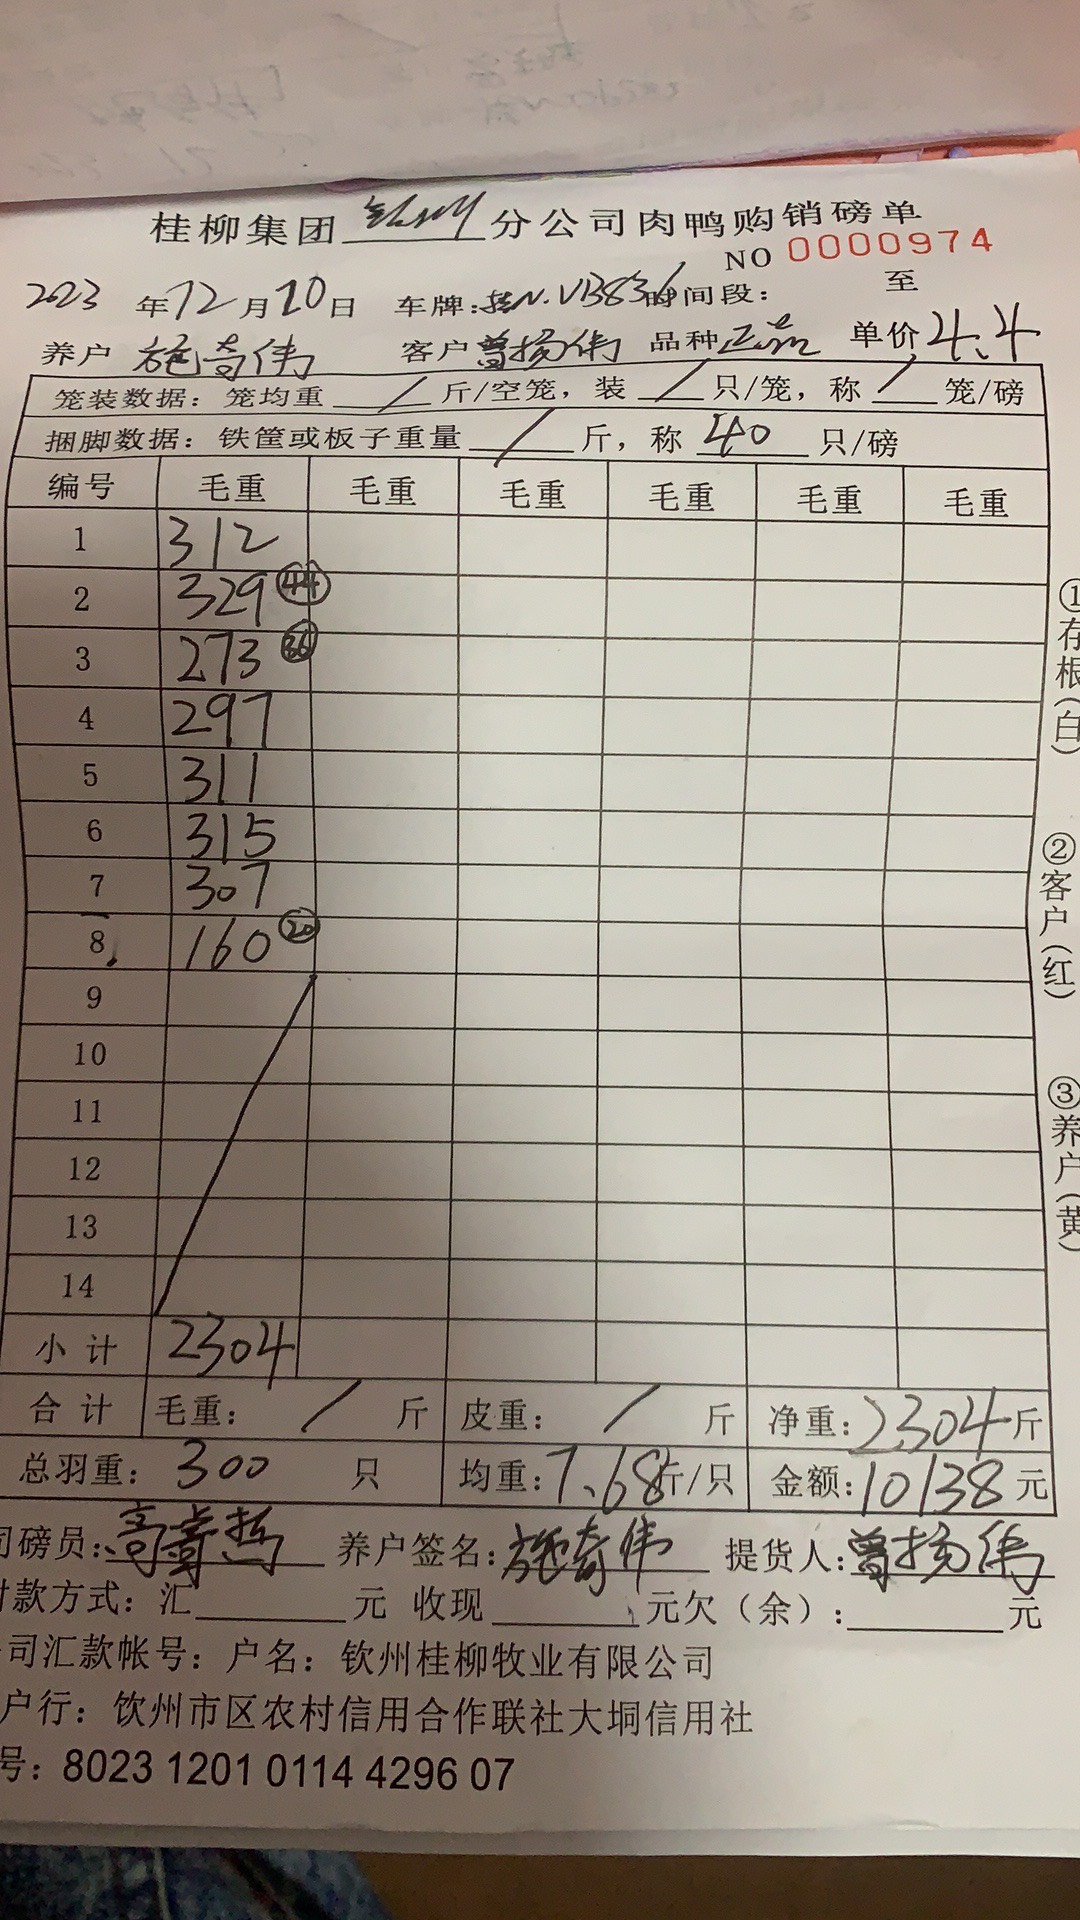 桂柳集团 钦州 分公司肉鸭购销磅单
NO 0000974
2023 年 12 月 10 日 车牌: 桂N.VB836 时间段: 至
养户 施奇伟 客户 曾扬伟 品种 正品 单价 4.4
笼装数据: 笼均重 / 斤/空笼, 装 / 只/笼, 称 / 笼/磅
捆脚数据: 铁筐或板子重量 / 斤, 称 40 只/磅
编号 毛重 毛重 毛重 毛重 毛重 毛重
1 312
2 329 44
3 273 36
4 297
5 311
6 315
7 307
8 160 20
9
10
11
12
13
14
小计 2304
合计 毛重: / 斤 皮重: / 斤 净重: 2304 斤
总羽重: 300 只 均重: 7.68 斤/只 金额: 10138 元
司磅员: 养户签名: 施奇伟 提货人: 曾扬伟
付款方式: 汇 元 收现 元欠(余): 元
司汇款帐号: 户名: 钦州桂柳牧业有限公司
户行: 钦州市区农村信用合作联社大垌信用社
号: 8023 1201 0114 4296 07
①存根(白)
②客户(红)
③养户(黄)